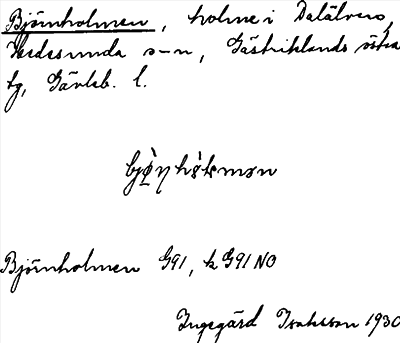 Björnholmen, holme i Dalälven,
Hedesunda s-n, Gästriklands östra
tg, Gävleb. l.
Björnholmen G91, k G91 NO
Ingegärd Isaksson 1930